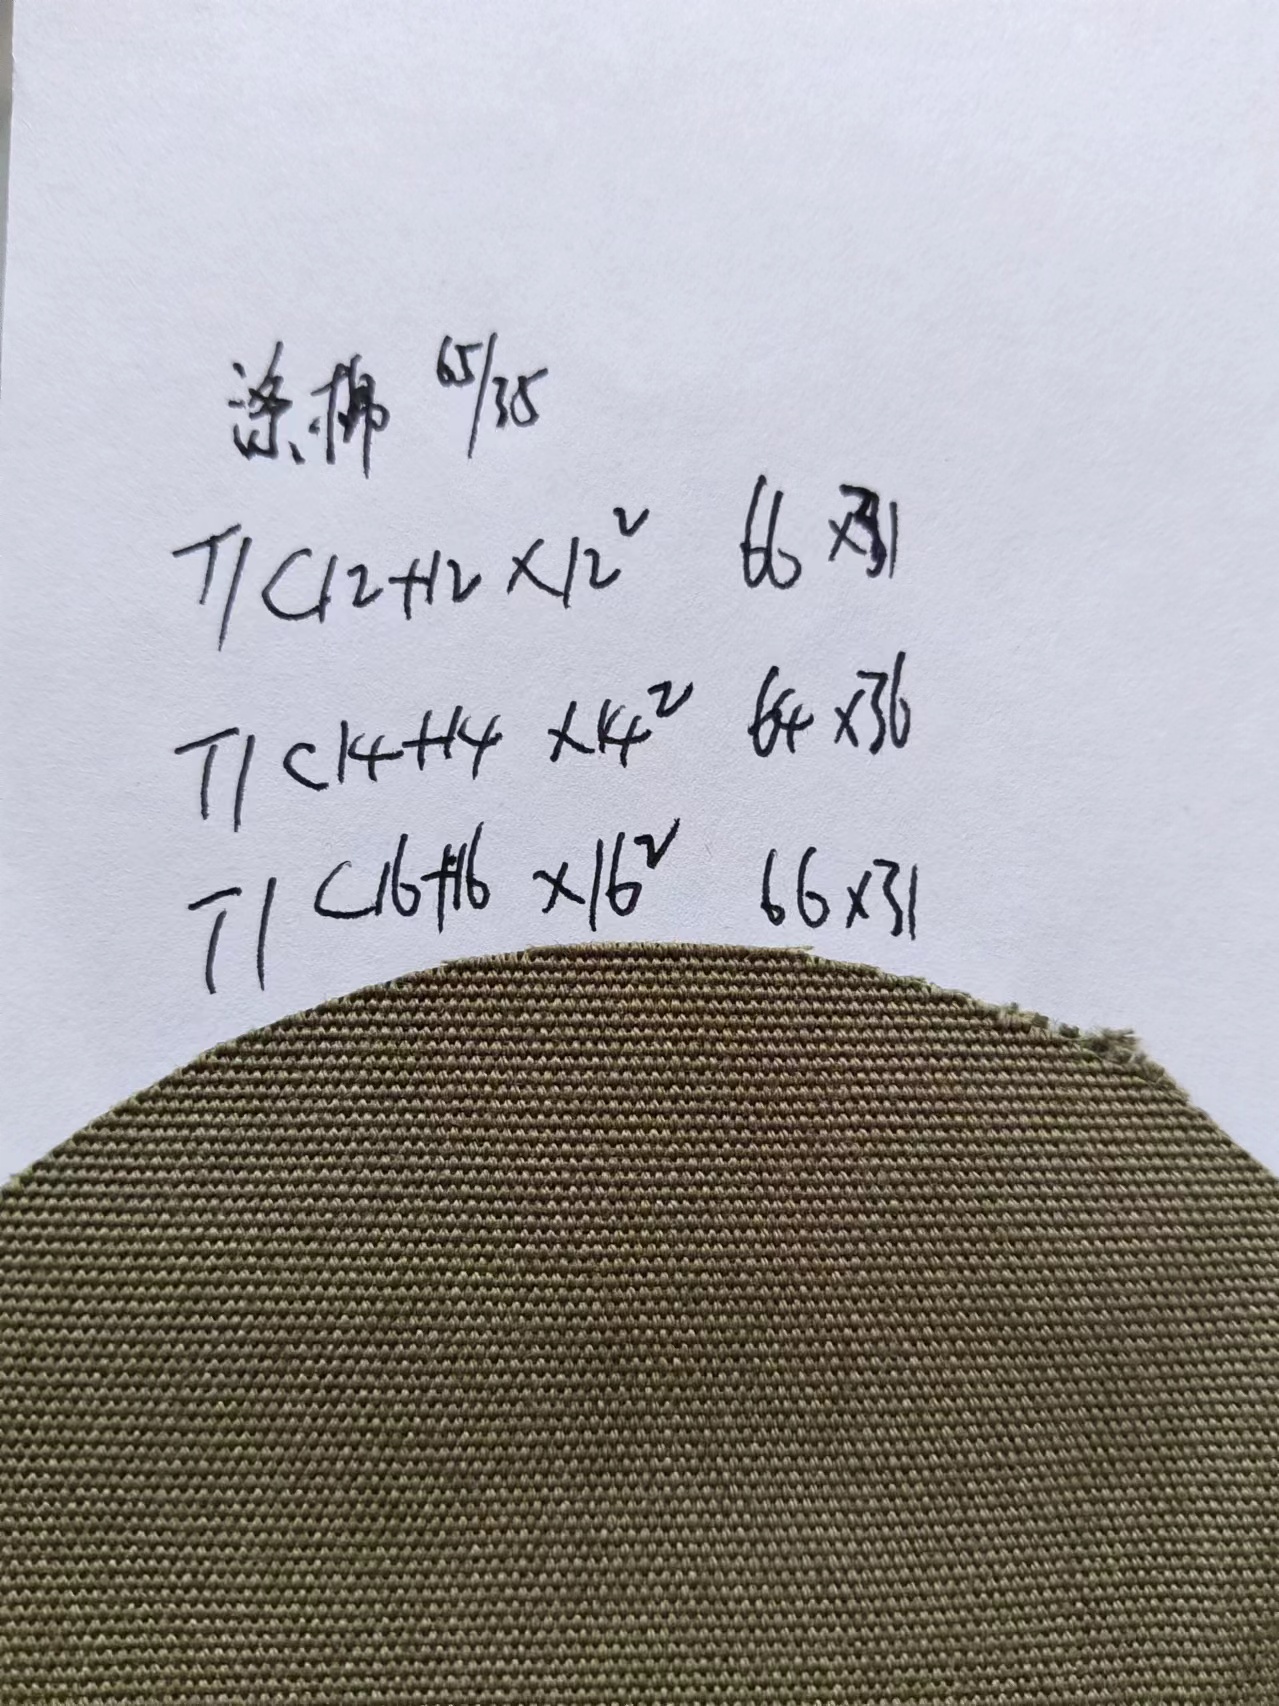 涤棉 65/35
T/C12+12×12² 66×31
T/C14+14×14² 64×36
T/C16+16×16² 66×31